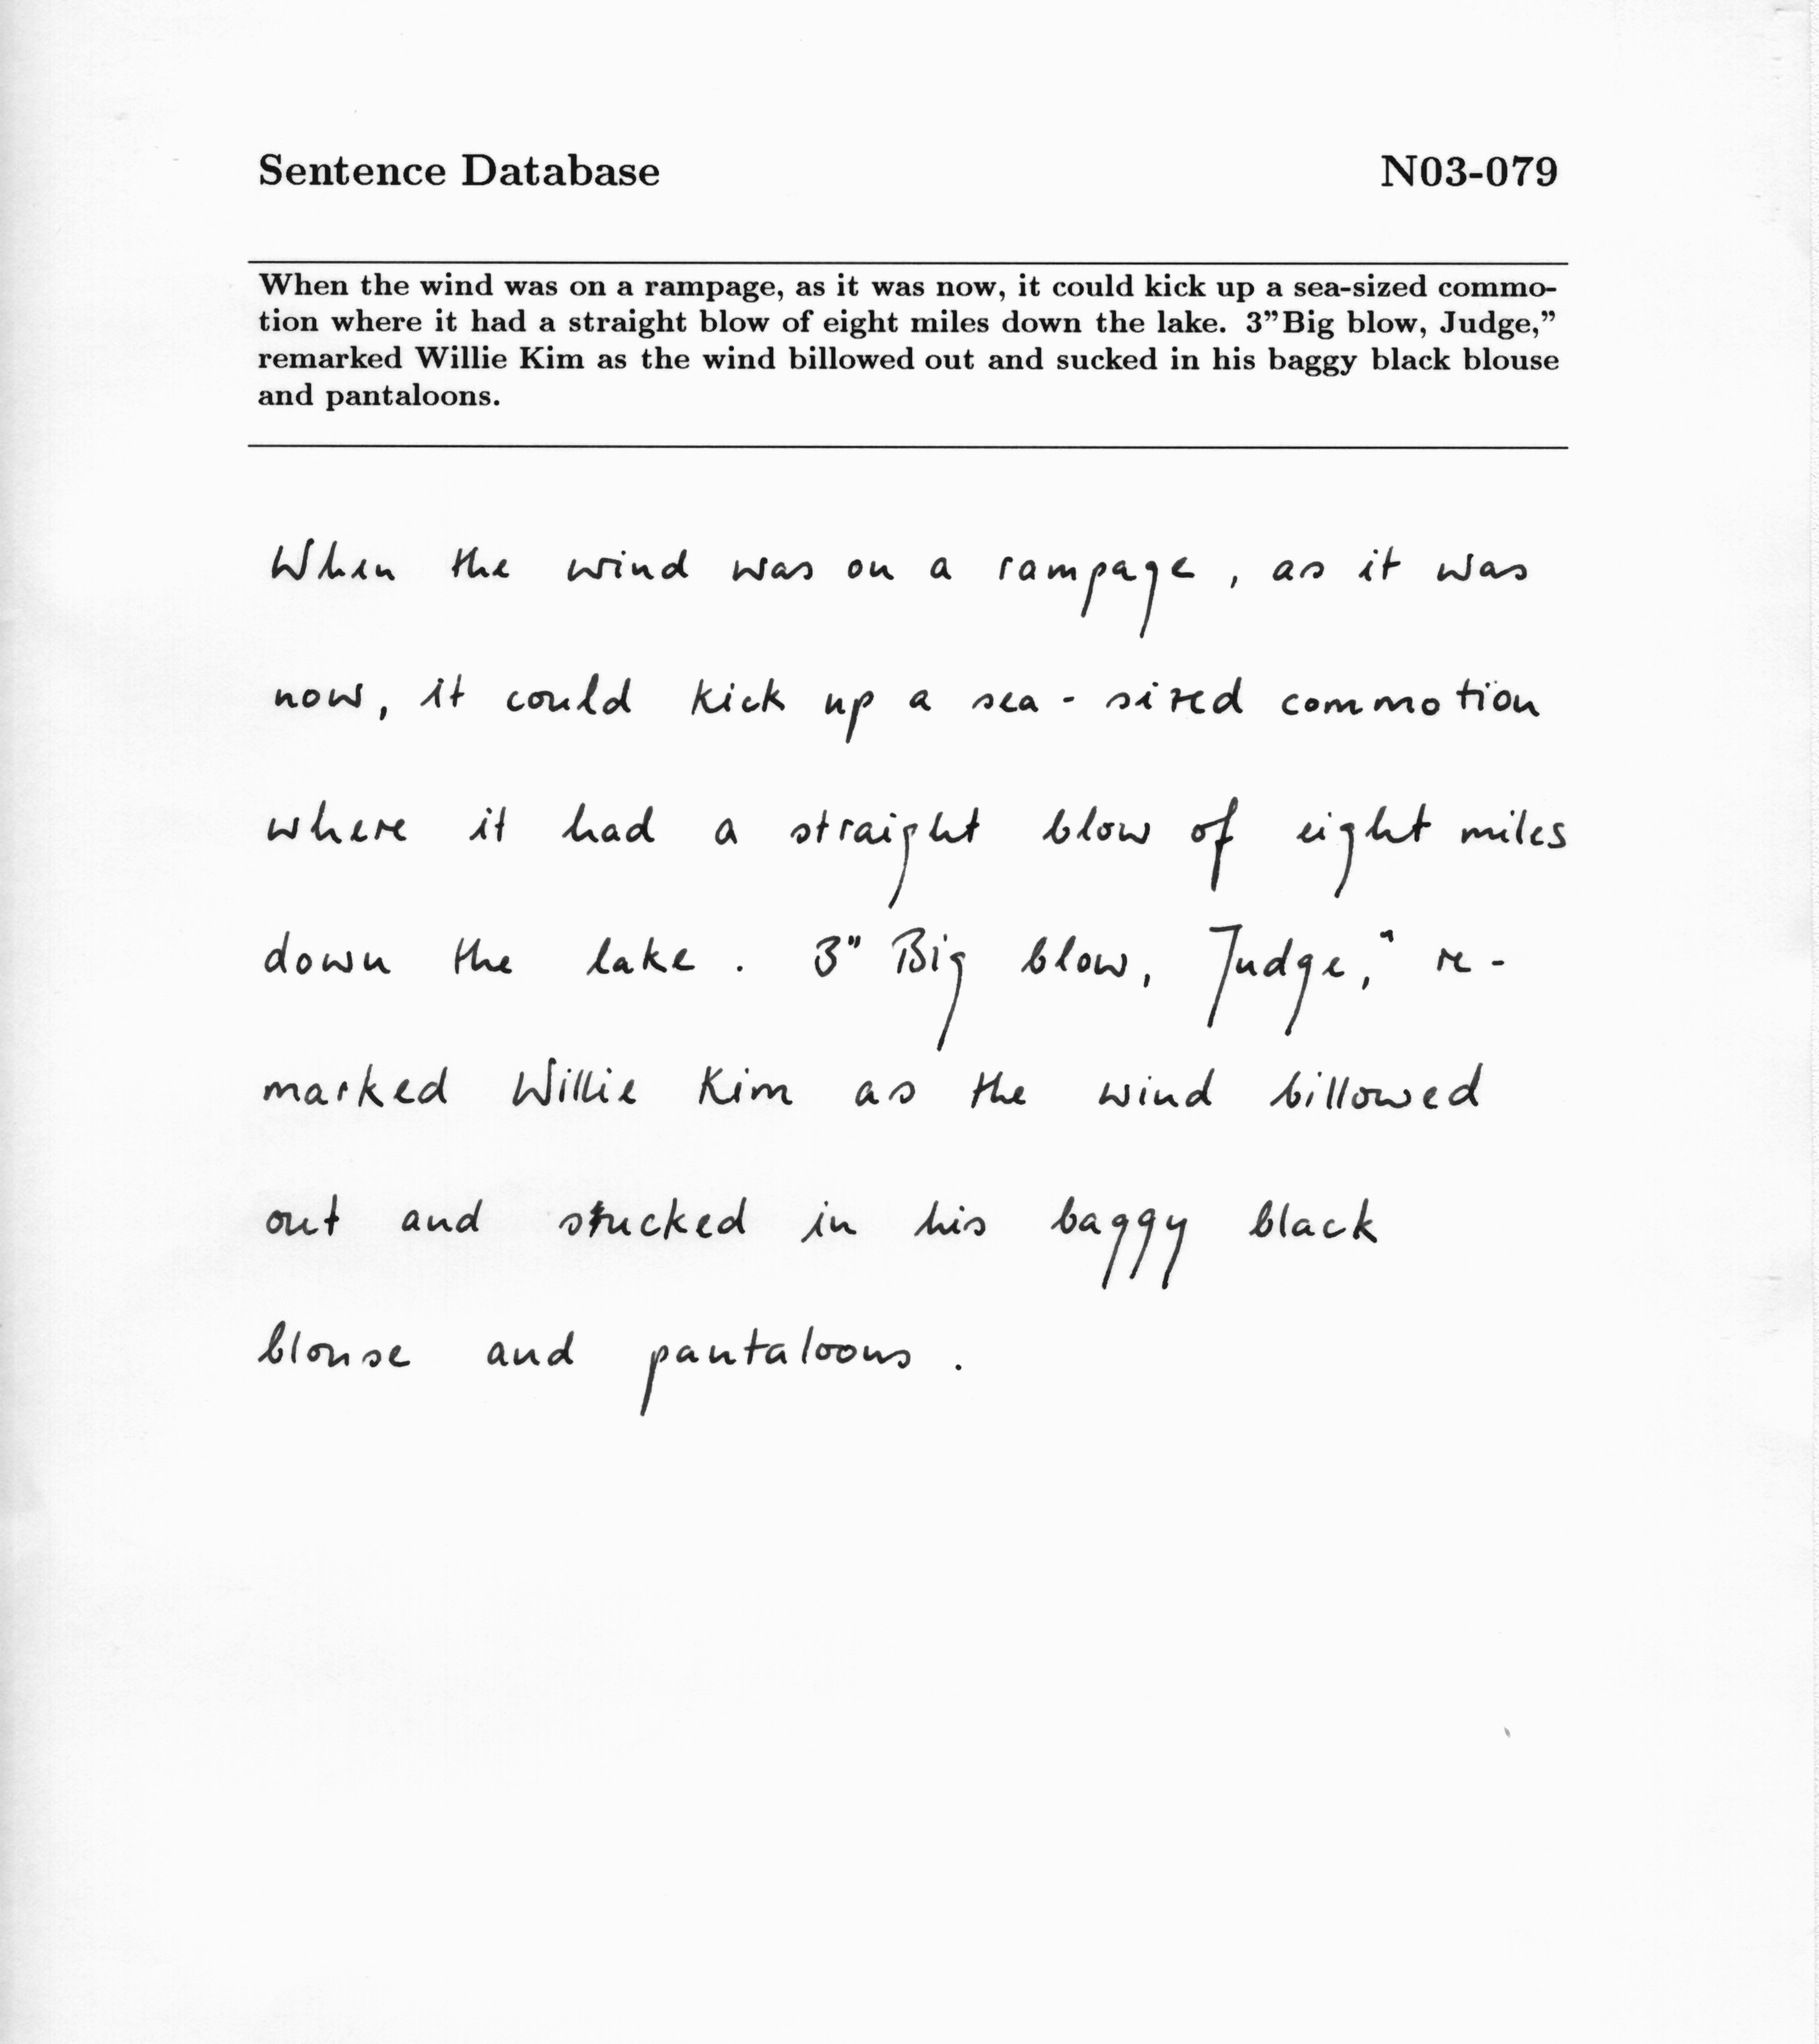 Sentence Database N03-079
When the wind was on a rampage, as it was now, it could kick up a sea-sized commo-
tion where it had a straight blow of eight miles down the lake. 3”Big blow, Judge,”
remarked Willie Kim as the wind billowed out and sucked in his baggy black blouse
and pantaloons.
When the wind was on a rampage, as it was
now, it could kick up a sea-sized commotion
where it had a straight blow of eight miles
down the lake. 3" Big blow, Judge," re-
marked Willie Kim as the wind billowed
out and stucked in his baggy black
blouse and pantaloons.